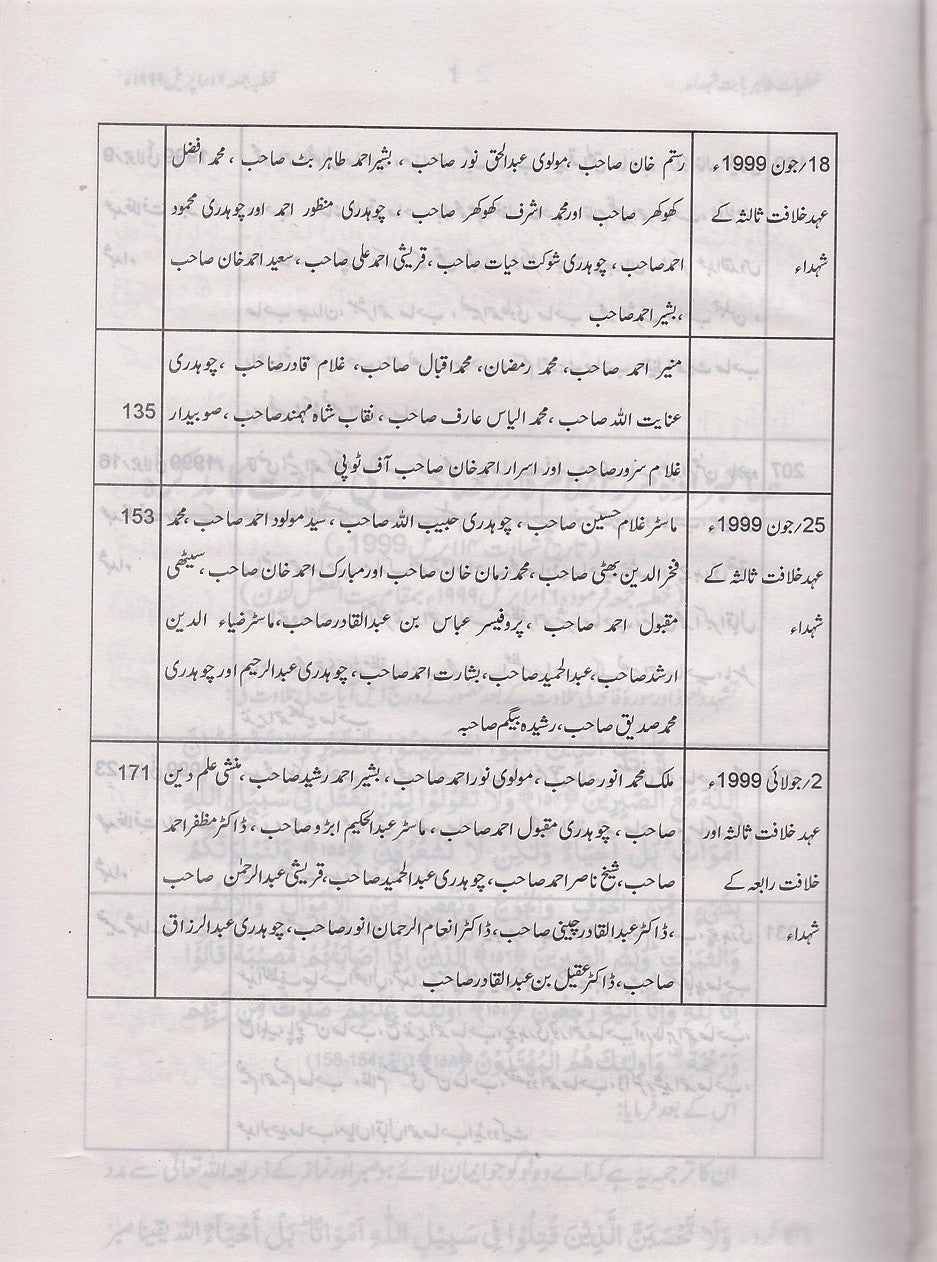 18/جون 1999ء
عہد خلافت ثالثہ کے
شہداء
رستم خان صاحب ،مولوی عبدالحق نور صاحب ، بشیر احمد طاہر بٹ صاحب ، محمد افضل
کھوکھر صاحب اور محمد اشرف کھوکھر صاحب ، چوہدری منظور احمد اور چوہدری محمود
احمد صاحب ، چوہدری شوکت حیات صاحب ،قریشی احمد علی صاحب ،سعید احمد خان صاحب
،بشیر احمد صاحب
منیر احمد صاحب، محمد رمضان، محمد اقبال صاحب، غلام قادر صاحب ،چوہدری
عنایت اللہ صاحب ، محمد الیاس عارف صاحب ، نقاب شاہ مہمند صاحب ، صوبیدار
غلام سرور صاحب اور اسرار احمد خان صاحب آف ٹوپی
135
25/جون 1999ء
عہد خلافت ثالثہ کے
شہداء
ماسٹر غلام حسین صاحب ، چوہدری حبیب اللہ صاحب ، سید مولود احمد صاحب ،محمد
فخر الدین بھٹی صاحب ،محمد زمان خان صاحب اور مبارک احمد خان صاحب ،سیٹھی
مقبول احمد صاحب ،پروفیسر عباس بن عبدالقادر صاحب،ماسٹر ضیاء الدین
ارشد صاحب،عبدالحمید صاحب،بشارت احمد صاحب، چوہدری عبدالرحیم اور چوہدری
محمد صدیق صاحب ،رشیدہ بیگم صاحبہ
153
2/جولائی 1999ء
عہد خلافت ثالثہ اور
خلافت رابعہ کے
شہداء
ملک محمد انور صاحب ، مولوی نور احمد صاحب ، بشیر احمد رشید صاحب ،منشی علم دین
صاحب ، چوہدری مقبول احمد صاحب ، ماسٹر عبدالحکیم ابڑو صاحب ، ڈاکٹر مظفر احمد
صاحب ،شیخ ناصر احمد صاحب ، چوہدری عبدالحمید صاحب ،قریشی عبدالرحمٰن صاحب
،ڈاکٹر عبدالقادر چینی صاحب ،ڈاکٹر انعام الرحمان انور صاحب ، چوہدری عبدالرزاق
صاحب ،ڈاکٹر عقیل بن عبدالقادر صاحب
171